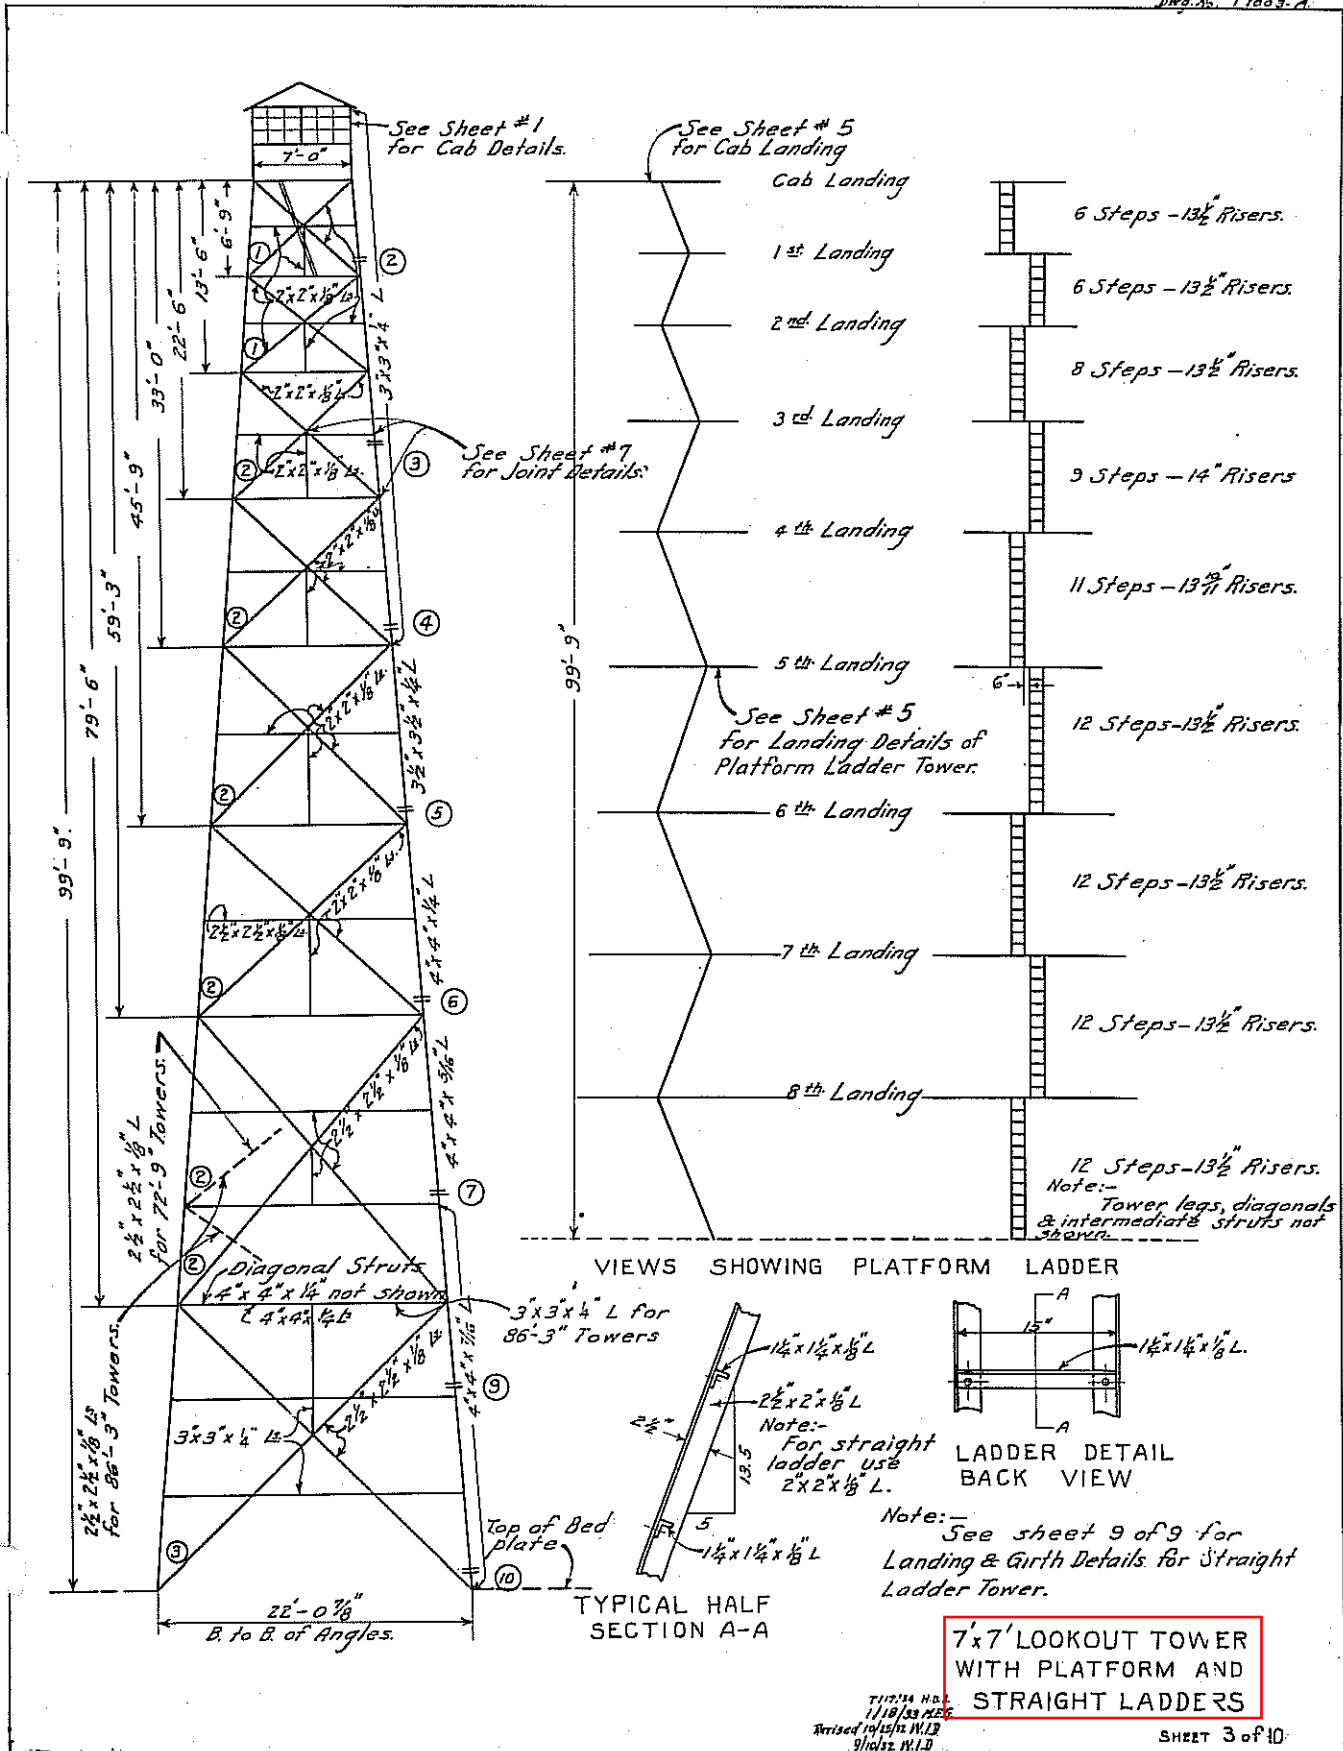 See Sheet #1
for Cab Details.
7'-0"
6'-9"
13'-6"
22'-6"
33'-0"
45'-9"
59'-3"
79'-6"
99'-9"
1
2
2"x2"x⅛" Ls.
1
3"x3"x¼" L
2"x2"x⅛" L.
See Sheet #7
for Joint Details.
2
2"x2"x⅛" Ls.
3
2"x2"x⅛" L
2
4
2"x2"x⅛" Ls.
3½"x3½"x¼" L
2
5
2"x2"x⅛" Ls.
2½"x2½"x⅛" Ls.
4"x4"x¼" L
2
6
2½"x2½"x⅛" Ls.
4"x4"x5/16" L
2½"x2½"x⅛" L
for 72'-9" Towers.
2
7
2
Diagonal Struts
4"x4"x¼" not shown
4"x4"x¼" Ls
3"x3"x¼" L for
86'-3" Towers
2½"x2½"x⅛" Ls
for 86'-3" Towers.
2½"x2½"x⅛" Ls
4"x4"x7/16" L
9
3"x3"x¼" Ls
3
Top of Bed
plate
10
22'-0⅞"
B. to B. of Angles.
See Sheet #5
for Cab Landing
Cab Landing
1st Landing
2nd Landing
3rd Landing
4th Landing
5th Landing
99'-9"
See Sheet #5
for Landing Details of
Platform Ladder Tower.
6th Landing
7th Landing
8th Landing
6 Steps - 13½" Risers.
6 Steps - 13½" Risers.
8 Steps - 13½" Risers.
9 Steps - 14" Risers
11 Steps - 13 10/11" Risers.
6"
12 Steps - 13½" Risers.
12 Steps - 13½" Risers.
12 Steps - 13½" Risers.
12 Steps - 13½" Risers.
Note:-
Tower legs, diagonals
& intermediate struts not
shown.
VIEWS SHOWING PLATFORM LADDER
1¼"x1¼"x⅛" L
2½"x2"x⅛" L
2½"
Note:-
For straight
ladder use
2"x2"x⅛" L.
13.5
5
1¼"x1¼"x⅛" L
TYPICAL HALF
SECTION A-A
A
15"
1¼"x1¼"x⅛" L.
A
LADDER DETAIL
BACK VIEW
Note:-
See sheet 9 of 9 for
Landing & Girth Details for Straight
Ladder Tower.
7'x7' LOOKOUT TOWER
WITH PLATFORM AND
STRAIGHT LADDERS
Revised 10/25/32 W.I.D
9/10/32 W.I.D
SHEET 3 of 10